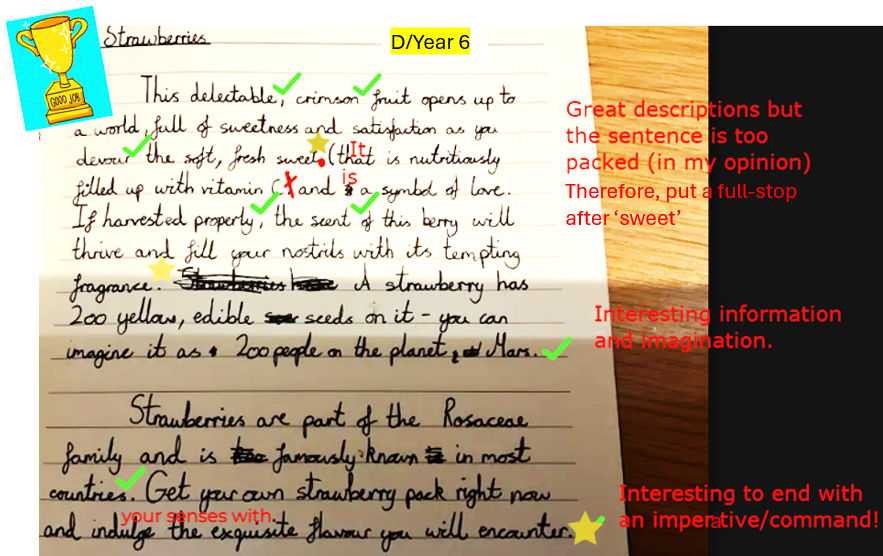 GOOD JOB
Strawberries
D/Year 6
This delectable, crimson fruit opens up to
a world, full of sweetness and satisfaction as you
devour the soft, fresh sweet. (that It is nutritiously
filled up with vitamin C, and is a symbol of love.
If harvested properly, the scent of this berry will
thrive and fill your nostrils with its tempting
fragrance. A strawberry has
200 yellow, edible seeds on it - you can
imagine it as 200 people on the planet, Mars.
Strawberries are part of the Rosaceae
family and is famously known in most
countries. Get your own strawberry pack right now
your senses with
and indulge the exquisite flavour you will encounter.
Great descriptions but
the sentence is too
packed (in my opinion)
Therefore, put a full-stop
after ‘sweet’
Interesting information
and imagination.
Interesting to end with
an imperative/command!